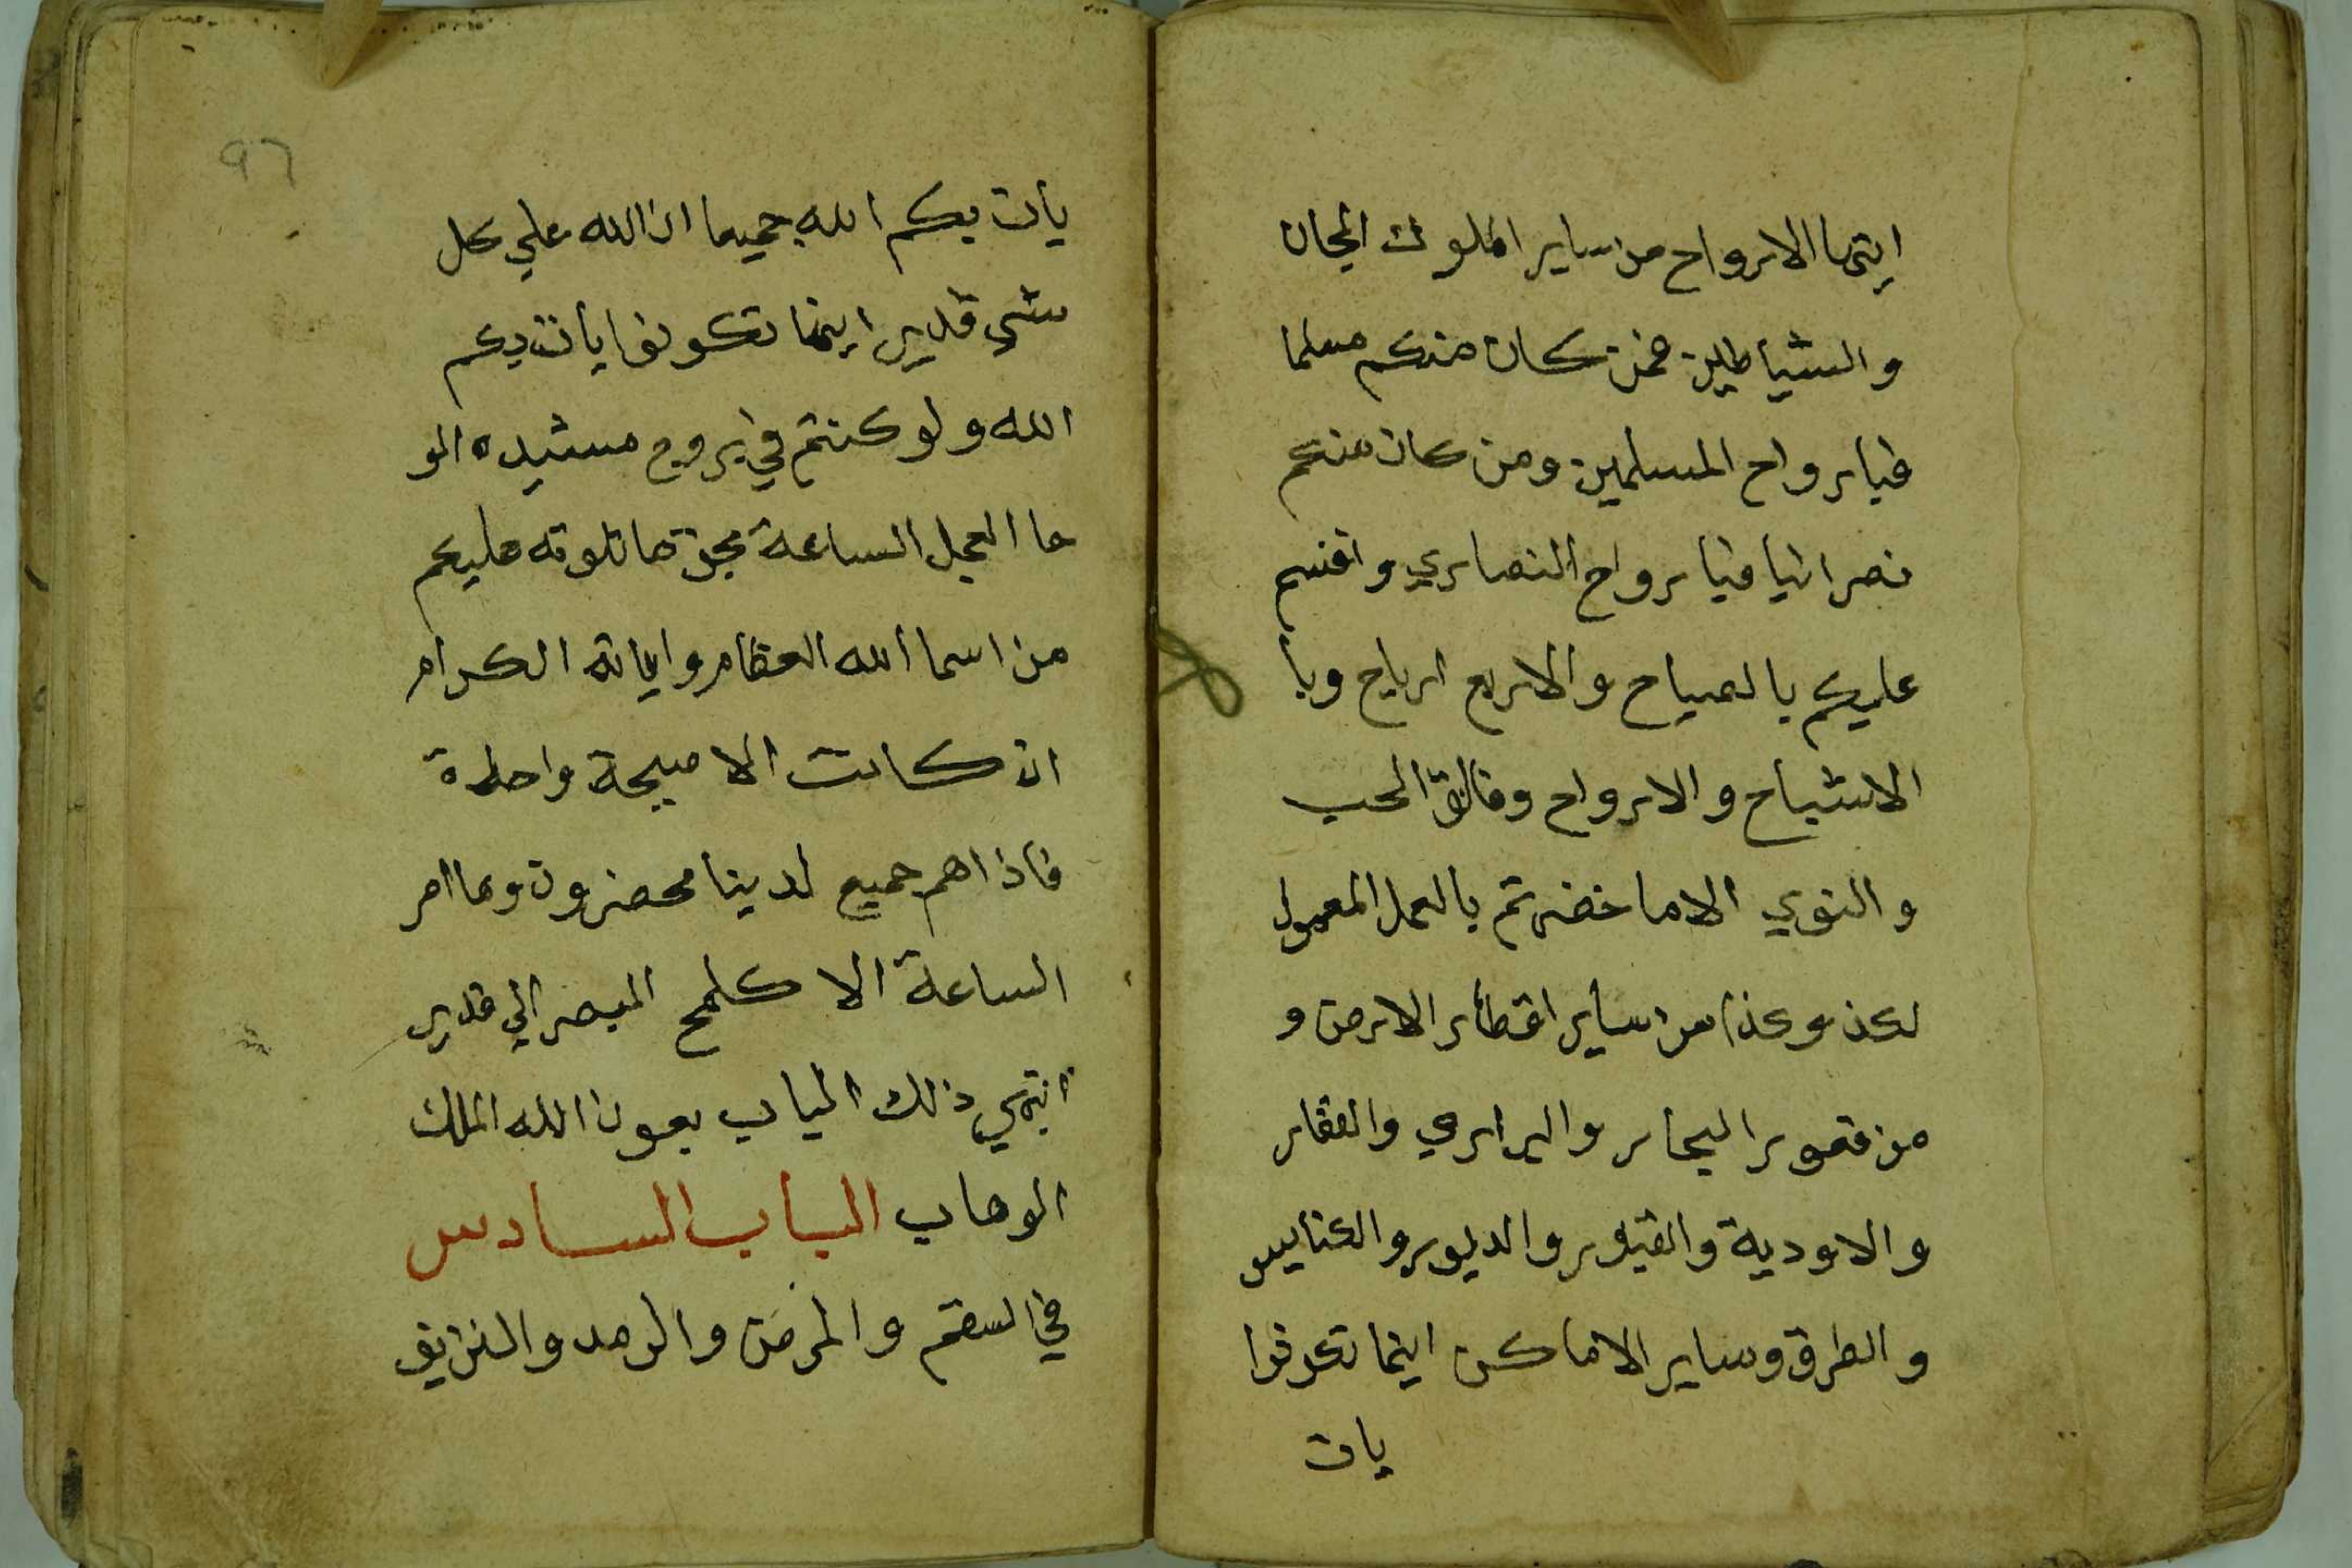 ايتها الارواح من ساير الملوك الجان
والشياطين فمن كان منكم مسلما
فبارواح المسلمين ومن كان منكم
نصرانيا فبارواح النصاري واقسم
عليكم بالصباح والاربع ارياح وبا
الاشباح والارواح وفالق الحب
والنوي الا ما حضرتم بالعمل المعمول
لكذ وكذا من ساير اقطار الارض و
من قصور البحار والبراري والقفار
والاودية والقبور والديور والكنايس
والطرق وساير الاماكن اينما تكونوا
يات
٩٦
يات بكم الله جميعا ان الله علي كل
شي قدير اينما تكونوا يات بكم
الله ولو كنتم في بروج مشيده الو
حا العجل الساعة بحق ما تلوته عليكم
من اسما الله العظام واياته الكرام
ان كانت الا صيحة واحدة
فاذا هم جميع لدينا محضرون وما امر
الساعة الا كلمح البصر الي قدير
انتهي ذلك الباب بعون الله الملك
الوهاب الباب السادس
في السقم والمرض والرمد والنزيف